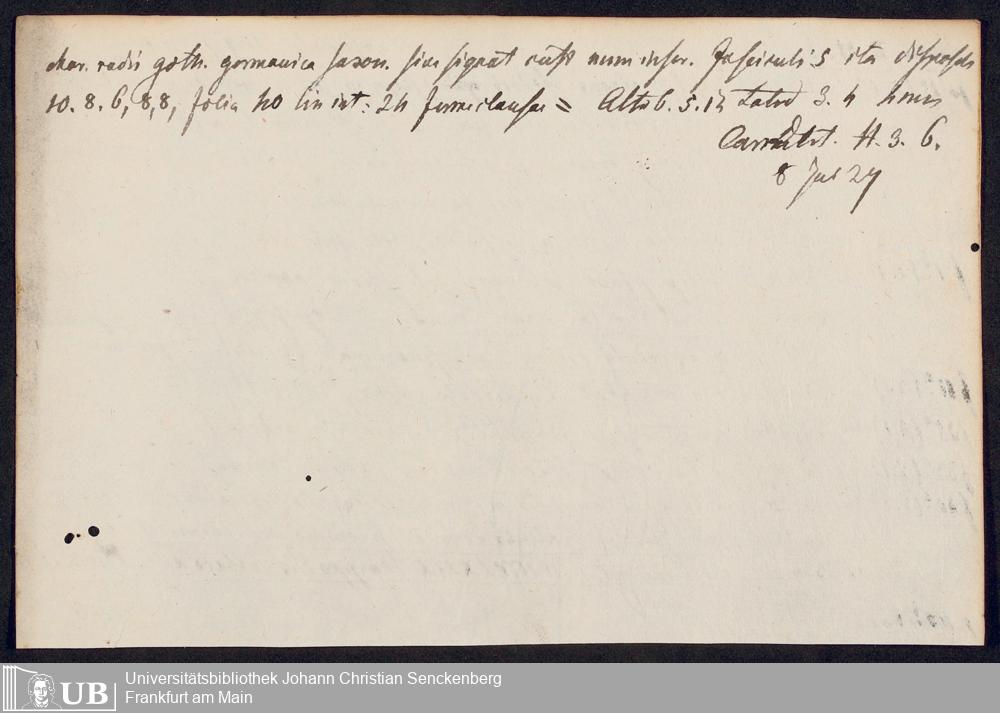 char. radii goth. germanica saxon. sine signat cust num inser. Fasciculi 5 ita dispositi
10. 8. 6, 8, 8, folia 40 lin int: 24 ferme clausae = Alt 6. 5. 12 Latid 3. 4
H. 3. 6.
8 Jul 24
UB
Universitätsbibliothek Johann Christian Senckenberg
Frankfurt am Main